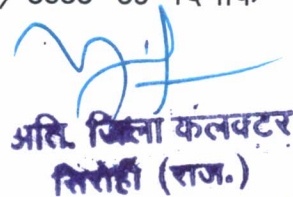 दिनांक
अति. जिला कलक्टर
सिरोही (राज.)